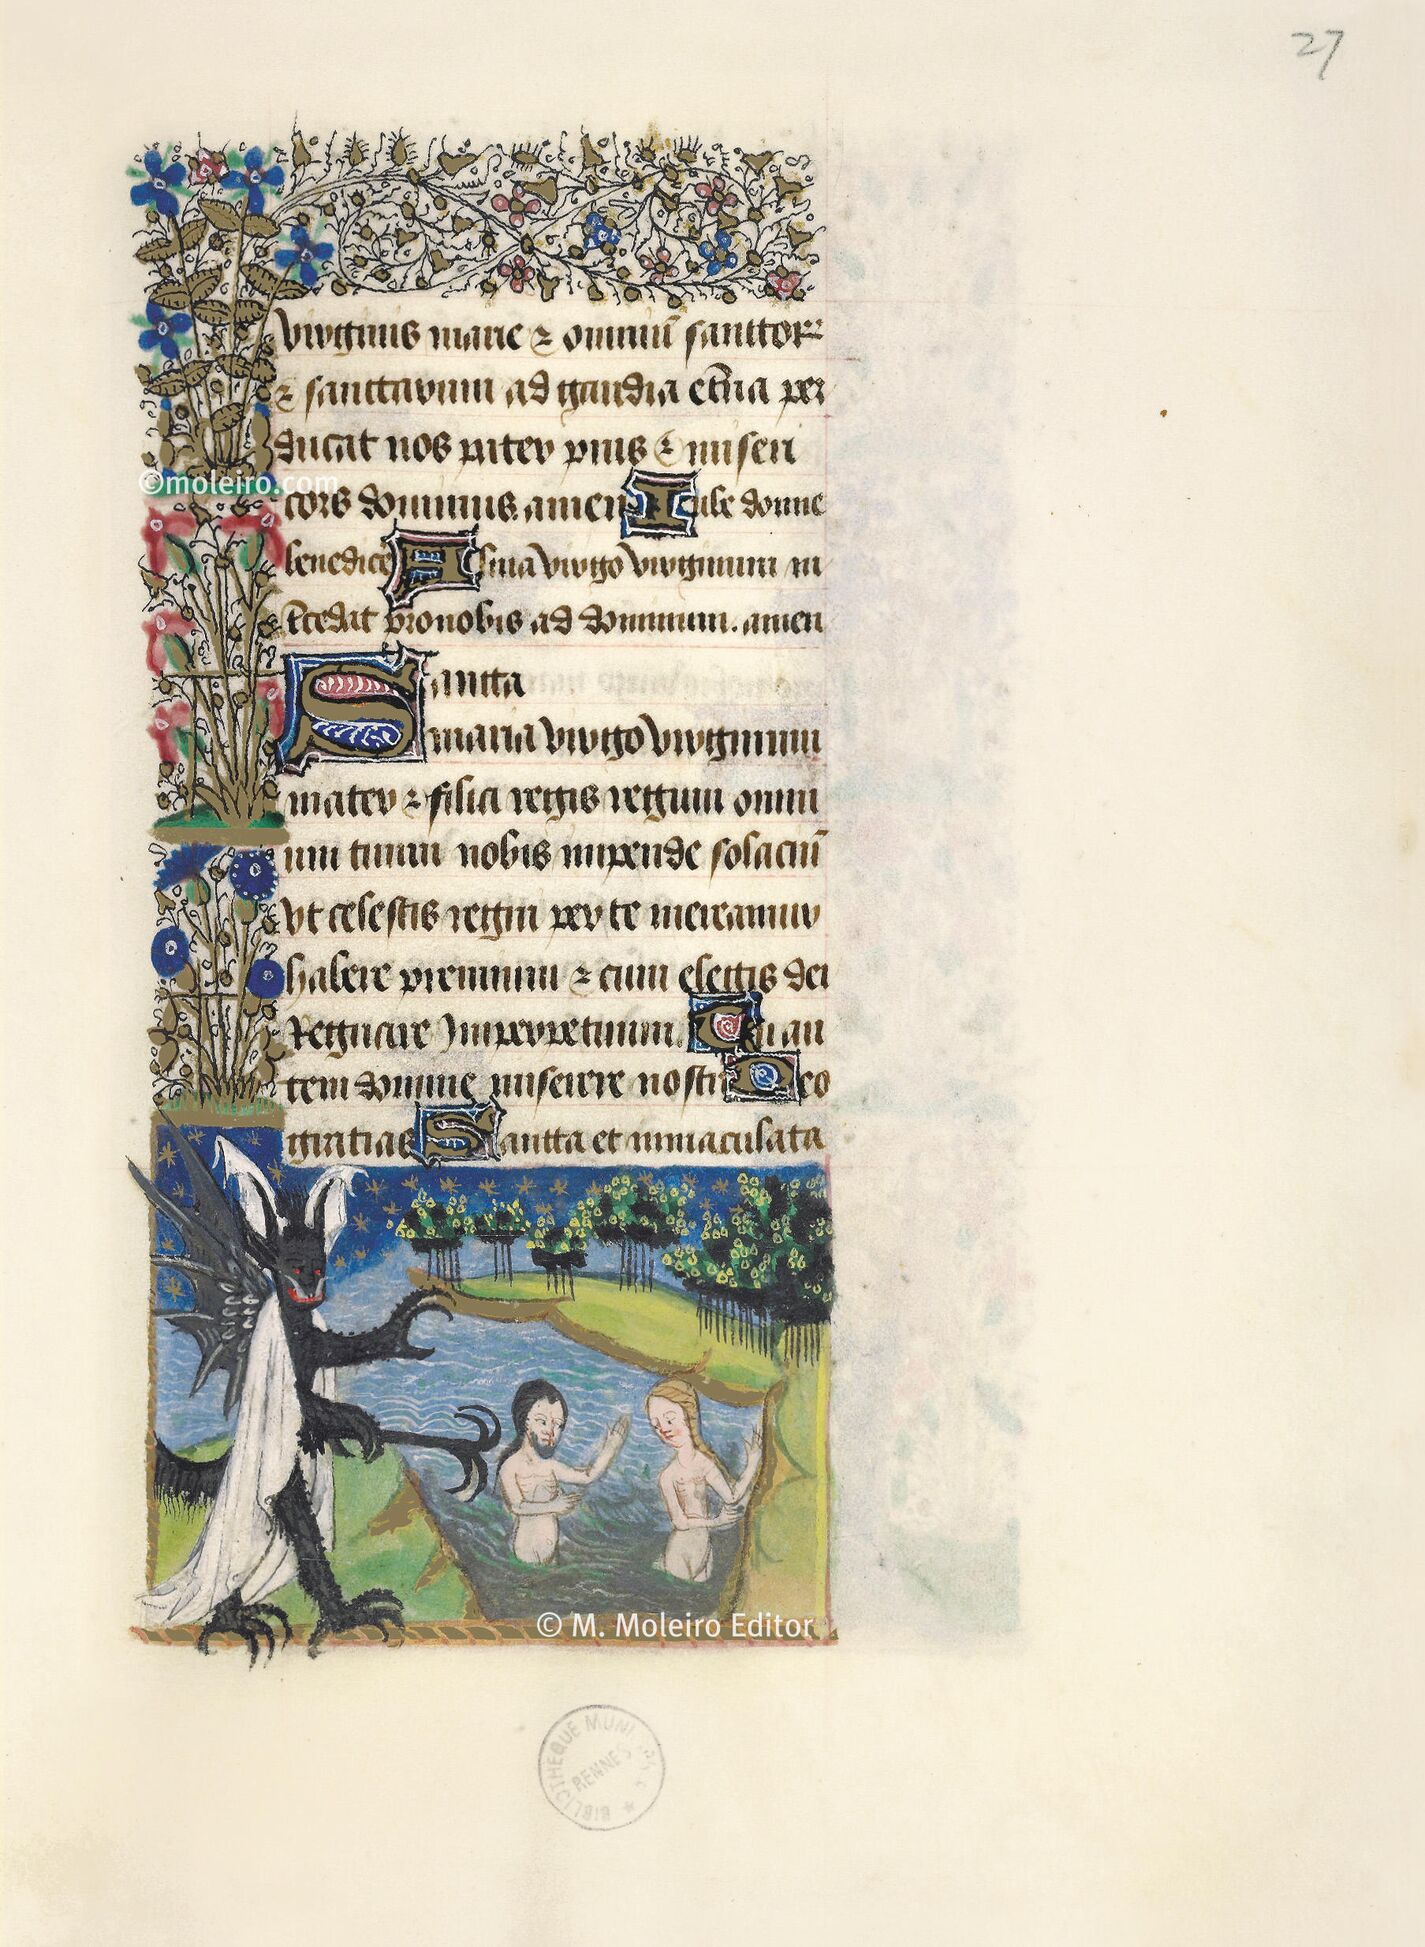 27
virginis marie ⁊ omniū sanctor
⁊ sanctarum ad gaudia et̄na per
ducat nos pater pius ⁊ miseri
©moleiro.com
cors dominus. amen Iube domne
benedice Alma virgo virginum in
tcedat pro nobis ad dominum. amen
Sancta
maria virgo virginum
mater ⁊ filia regis regum omni
um tuum nobis impende solaciū
vt celestis regni per te mereamur
habere premium ⁊ cum electis dei
Regnare Imperpetuum. Tu au
tem domine miserere nostri Deo
gratias Sancta et inmaculata
© M. Moleiro Editor
BIBLIOTHEQUE
RENNES